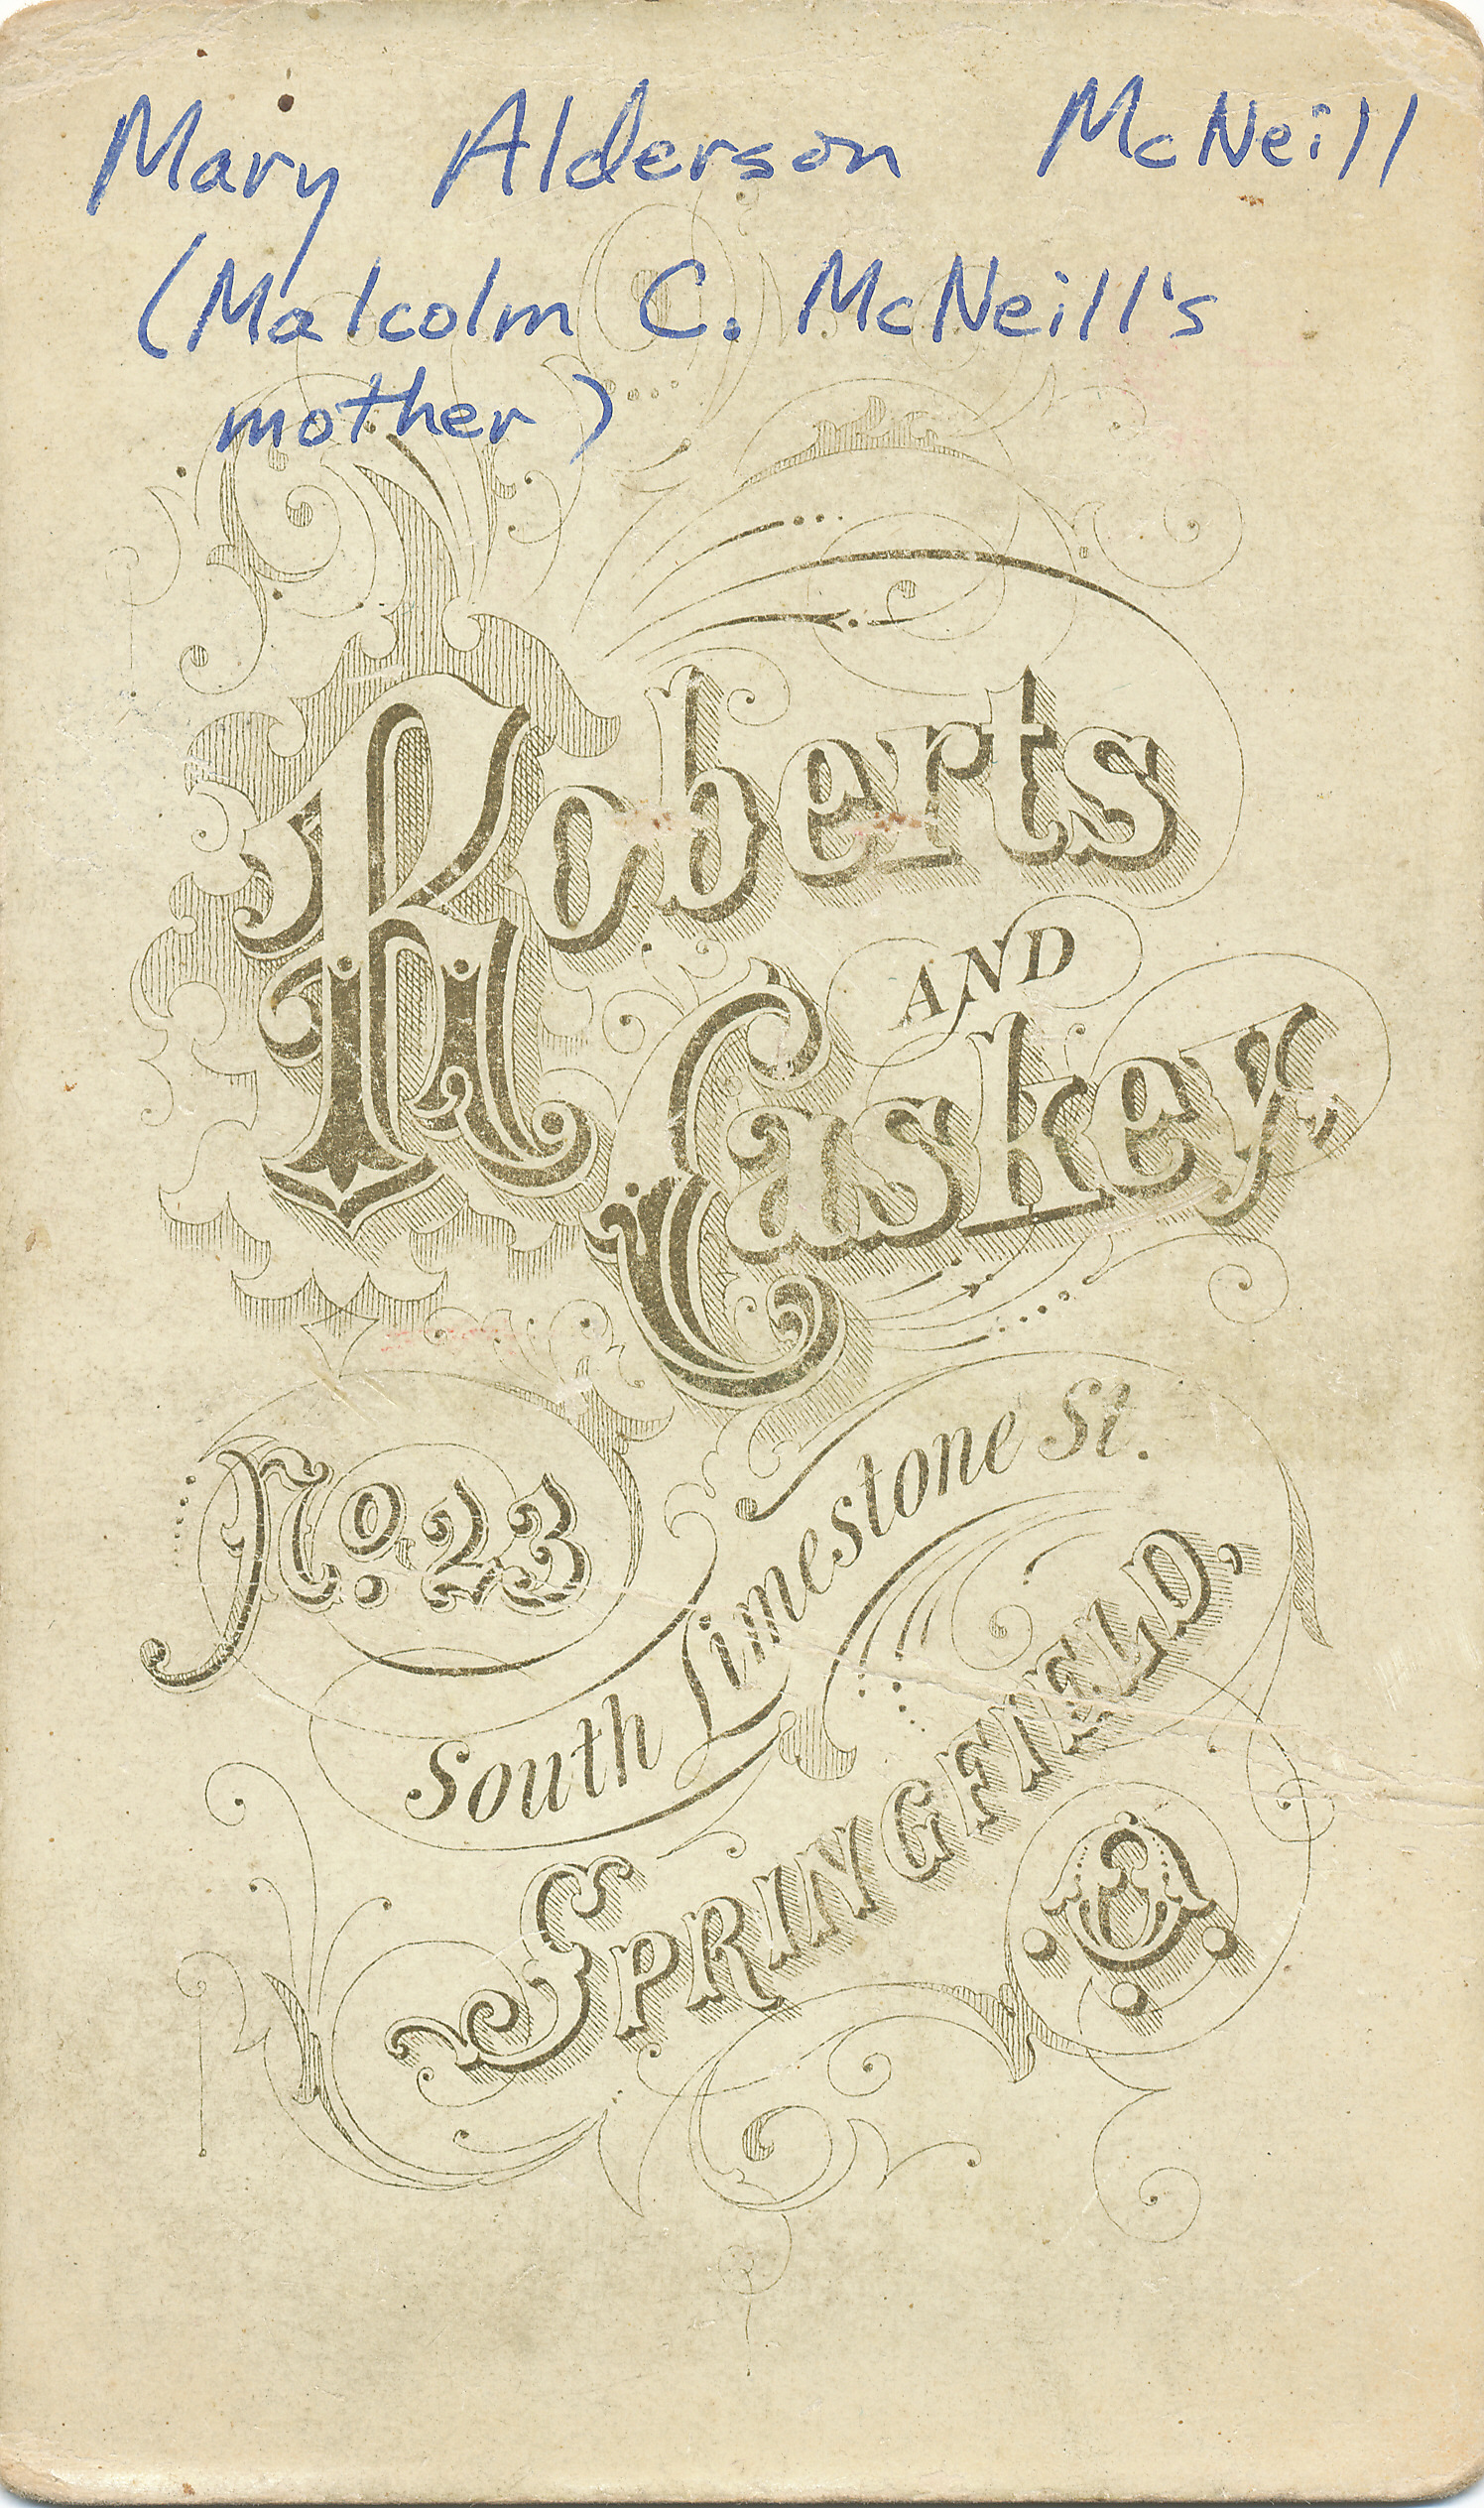 Mary Alderson McNeill
(Malcolm C. McNeill's
mother)
Roberts
AND
Caskey,
No. 23
South Limestone St.
SPRINGFIELD,
O.